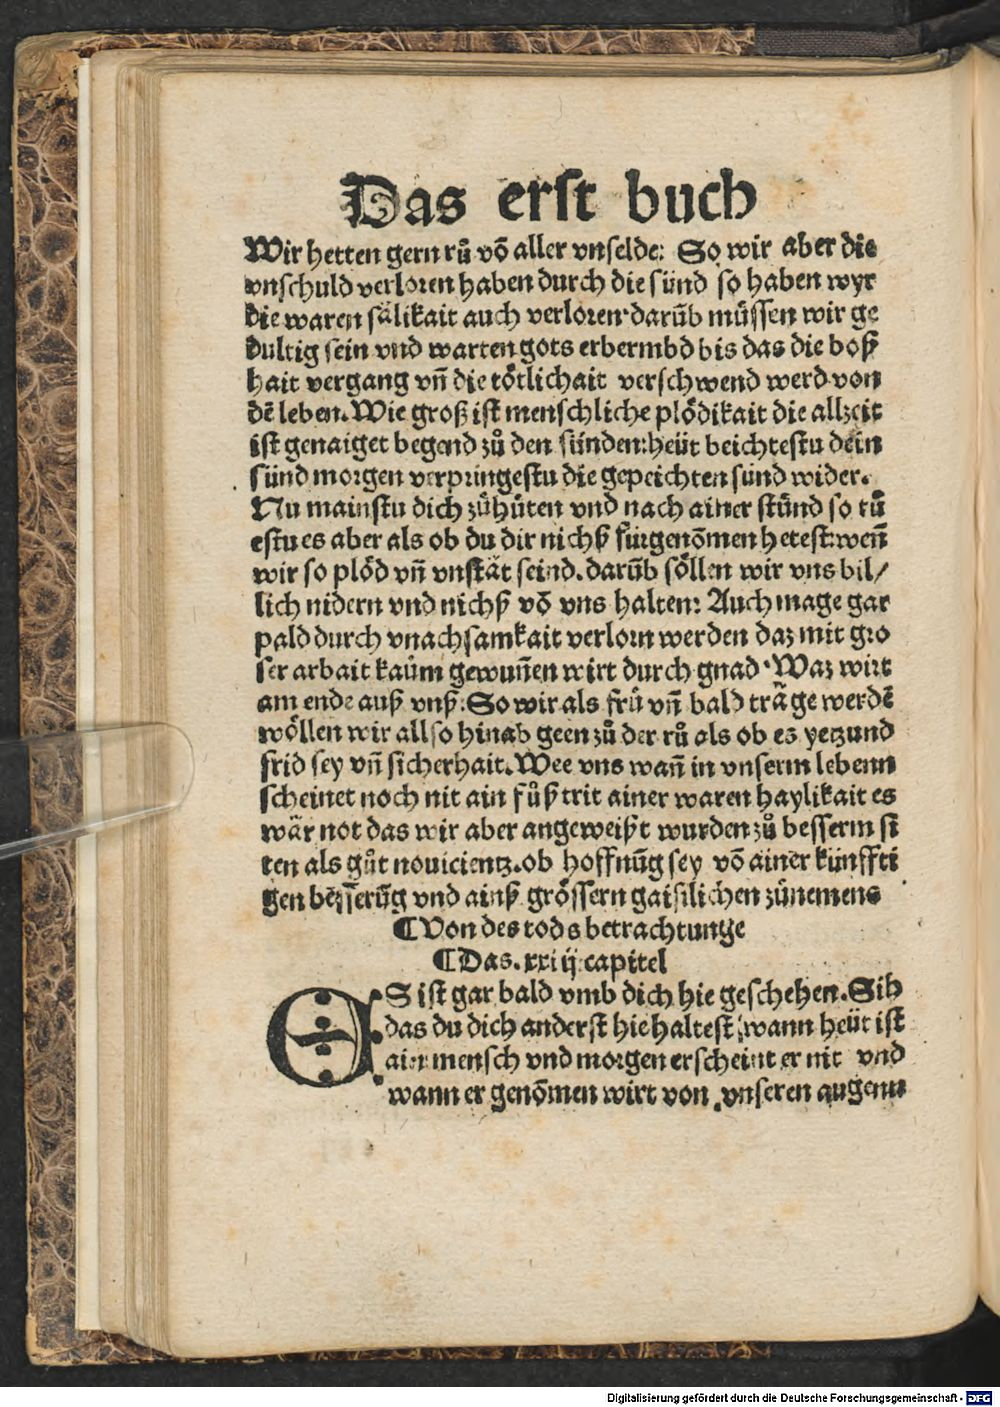 Das erst buch
Wir hetten gern rů võ aller vnselde: So wir aber die
vnschuld verloren haben durch die sünd so haben wyr
die waren sälikait auch verloren·darũb müssen wir ge
dultig sein vnd warten gots erbermbd bis das die boß
hait vergang vñ die tötlichait verschwend werd von
dẽ leben. Wie groß ist menschliche plödikait die allzeit
ist genaiget begend zů den sünden: heüt beichtestu dein
sünd morgen verpringestu die gepeichten sünd wider.
Nu mainstu dich zůhüten vnd nach ainer stünd so tů
estu es aber als ob du dir nichß fürgenõmen hetest: weñ
wir so plöd vñ vnstät seind. darũb söllen wir vns bil/
lich nidern vnd nichß võ vns halten: Auch mage gar
pald durch vnachsamkait verlorn werden daz mit gro
ser arbait kaům gewuñen wirt durch gnad· Waz wirt
am ende auß vnß: So wir als frü vñ bald träge werdẽ
wöllen wir allso hinab geen zů der rů als ob es yetzund
frid sey vñ sicherhait. Wee vns wañ in vnserm lebenn
scheinet noch nit ain fůßtrit ainer waren haylikait es
wär not das wir aber angeweißt wurden zů besserm si
ten als gůt nouicientz. ob hoffnũg sey võ ainer künffti
gen besserũg vnd ainß grössern gaistlichen zůnemens
¶Von des tods betrachtunge
¶Das. xxiij capitel
ES ist gar bald vmb dich hie geschehen. Sih
das du dich anderst hie haltest, wann heüt ist
ain mensch vnd morgen erscheint er nit vnd
wann er genõmen wirt von vnseren augenn
Digitalisierung gefördert durch die Deutsche Forschungsgemeinschaft - DFG